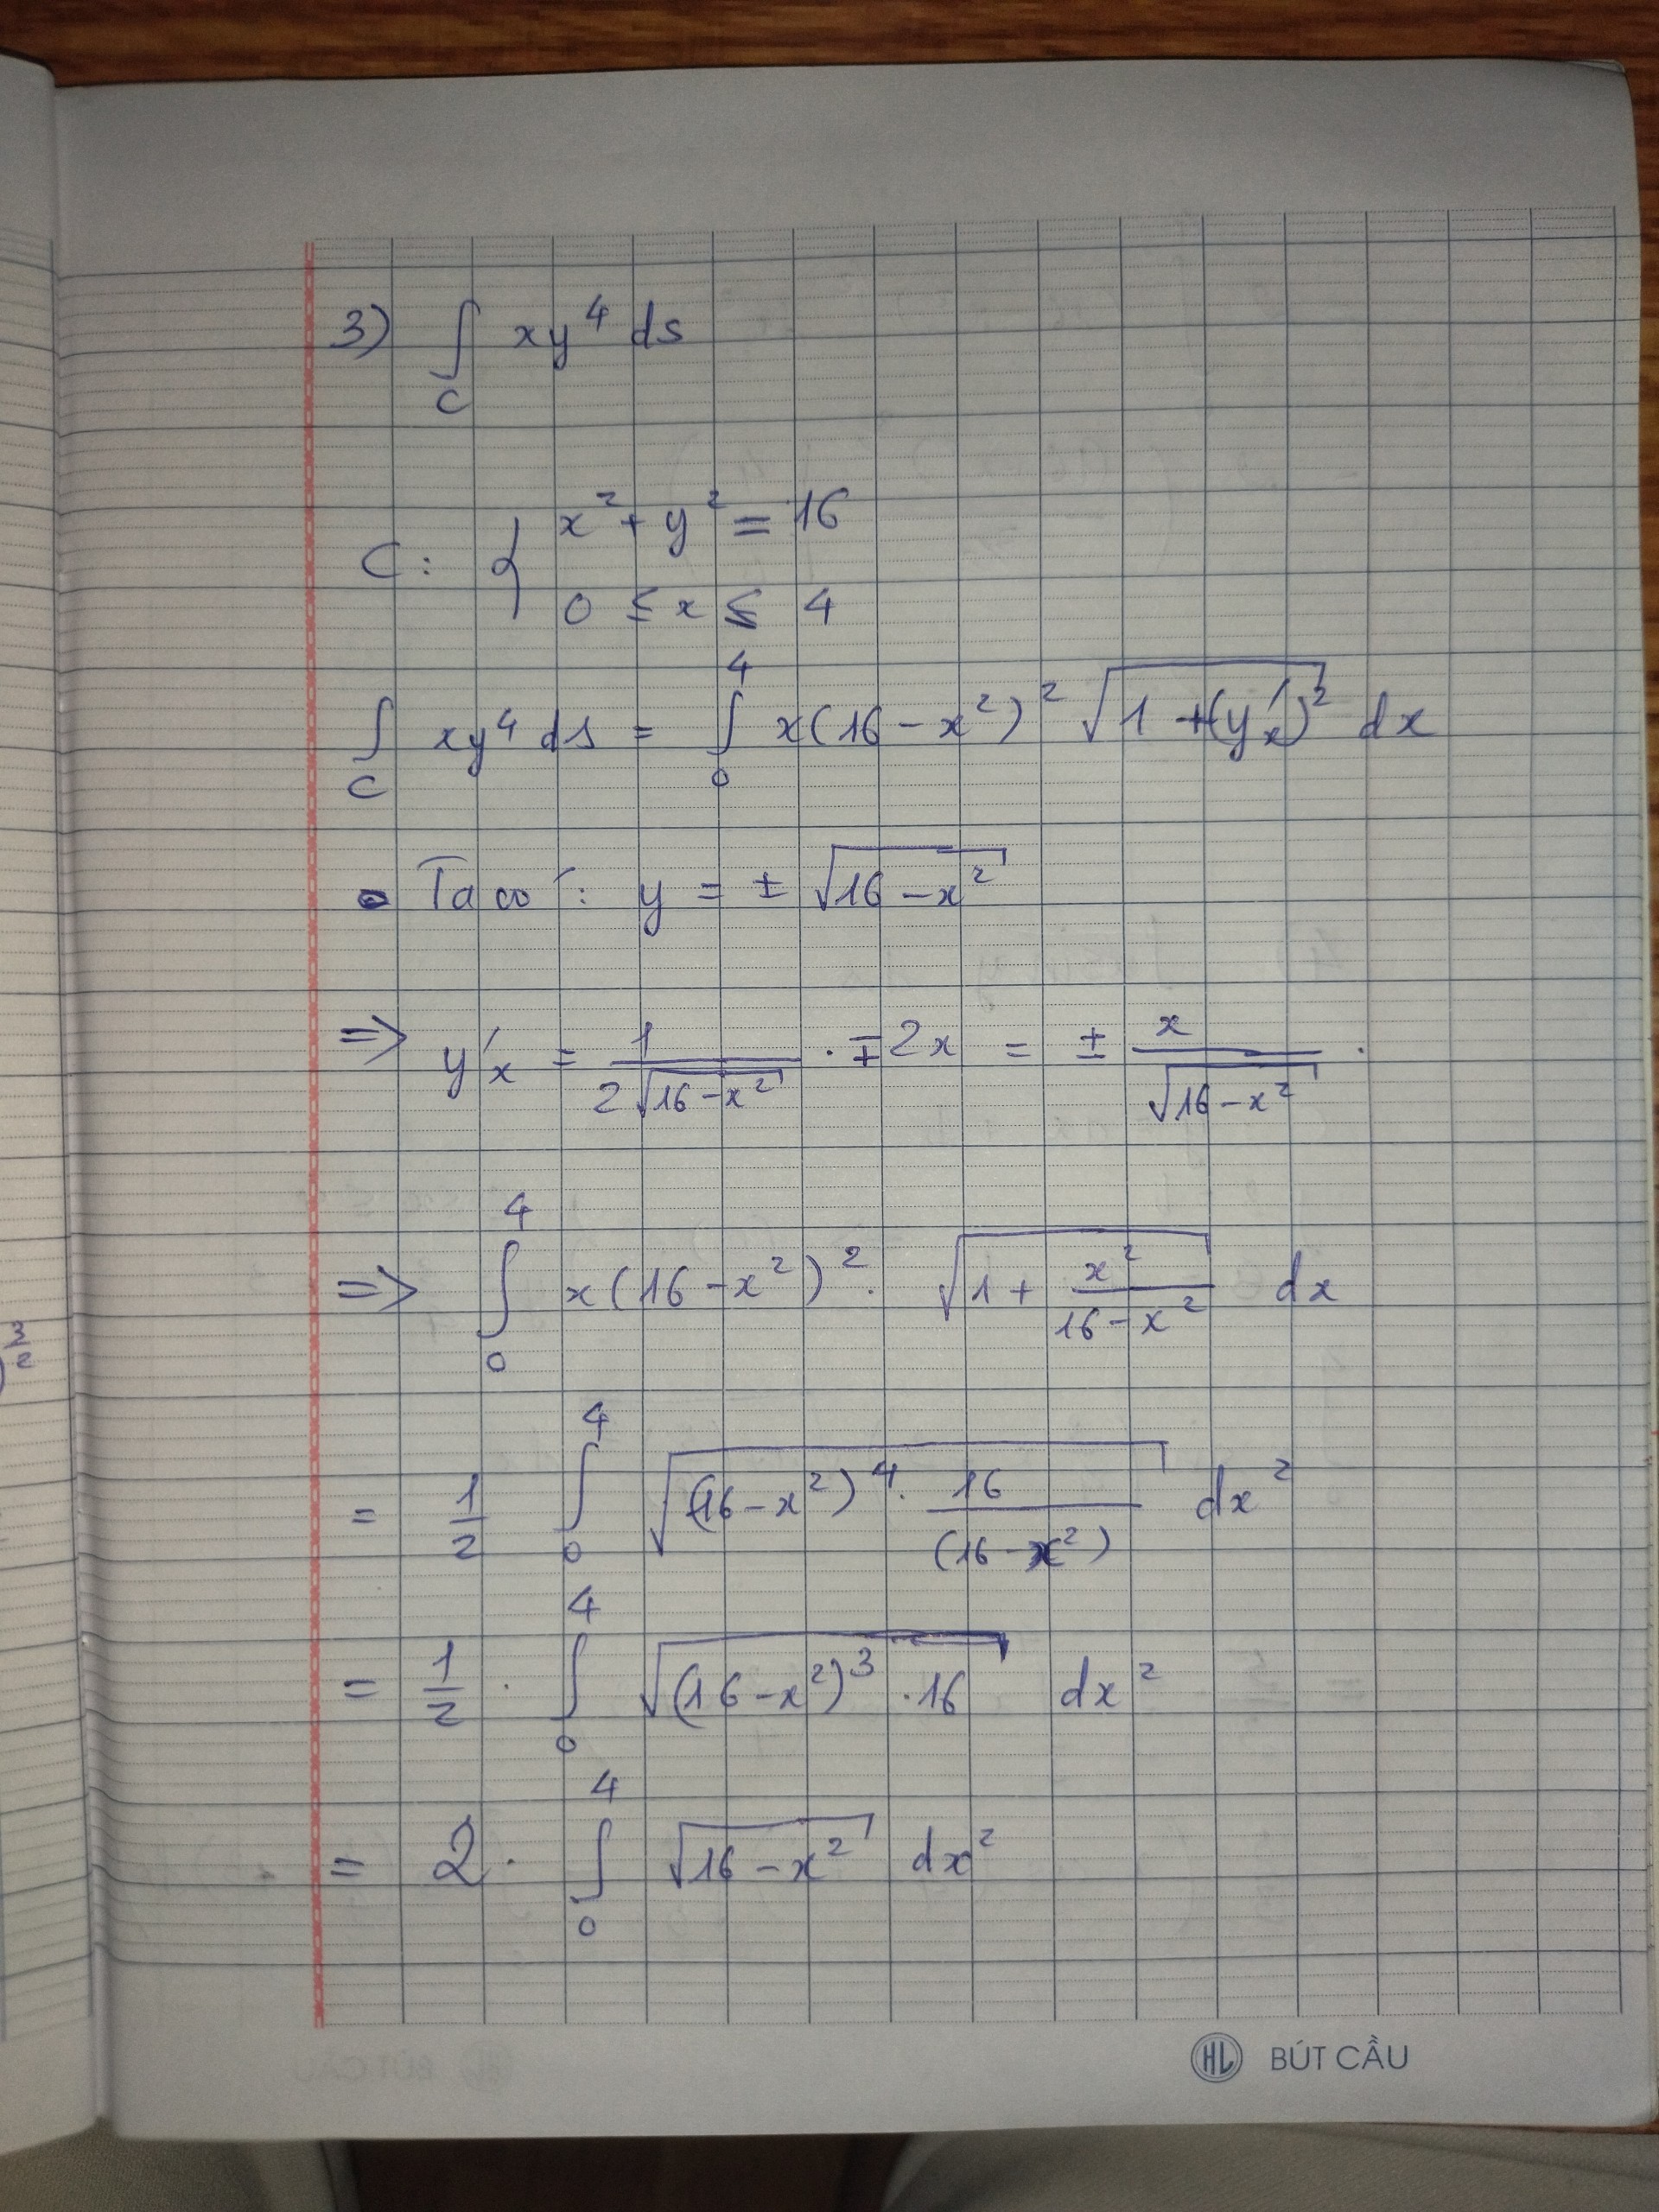 3) ∫_C xy⁴ ds
C: { x² + y² = 16
0 ≤ x ≤ 4
∫_C xy⁴ ds = ∫₀⁴ x(16 - x²)² √(1 + (y'ₓ)²) dx
Ta có: y = ± √(16 - x²)
=> y'ₓ = 1/(2√(16 - x²)) · ∓2x = ± x/√(16 - x²) .
=> ∫₀⁴ x(16 - x²)² . √(1 + x²/(16 - x²)) dx
= 1/2 ∫₀⁴ √((16 - x²)⁴ . 16/(16 - x²)) dx²
= 1/2 · ∫₀⁴ √((16 - x²)³ . 16) dx²
= 2 · ∫₀⁴ √(16 - x²) dx²
3/2
HL BÚT CẦU